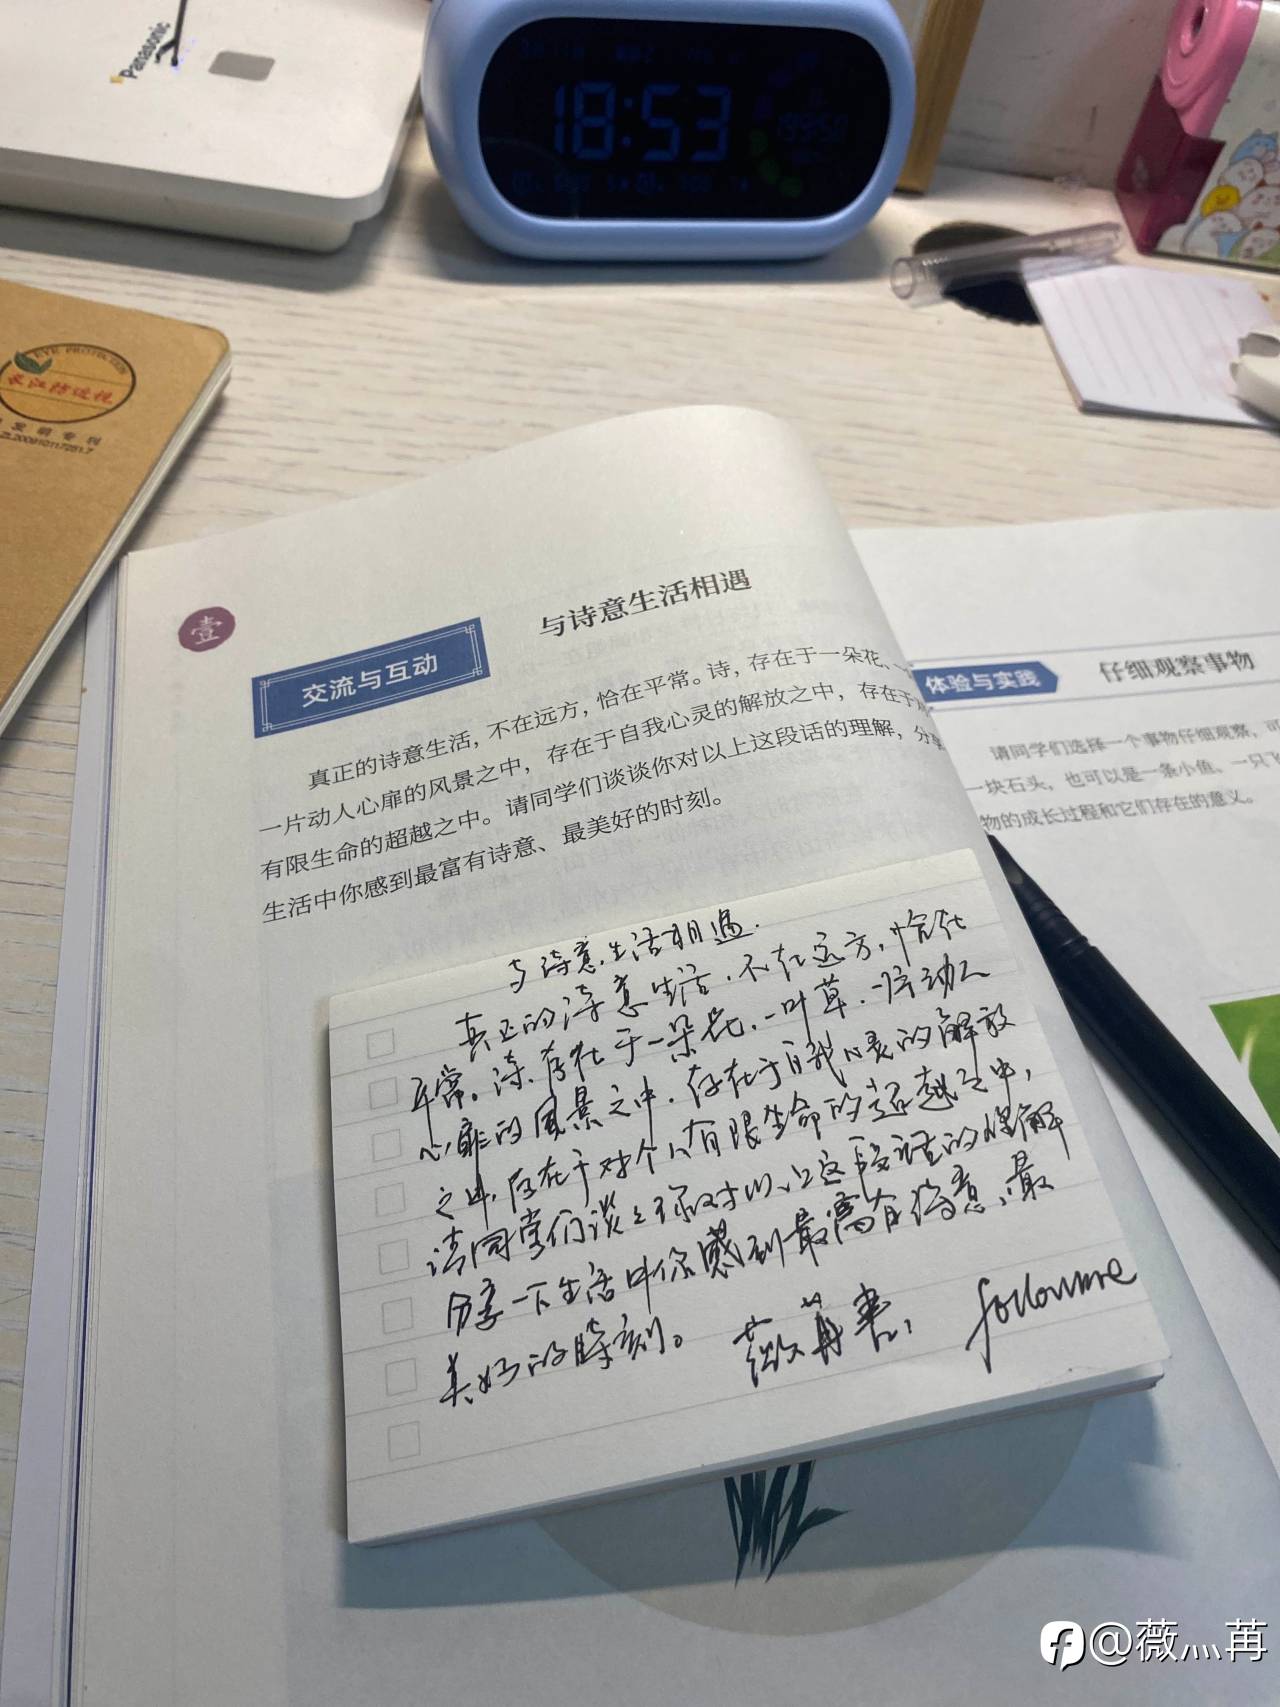 Panasonic
18:53
EYE PROTECTION
长江防近视
发明专利
壹
交流与互动
与诗意生活相遇
真正的诗意生活，不在远方，恰在平常。诗，存在于一朵花、一
一片动人心扉的风景之中，存在于自我心灵的解放之中，存在于
有限生命的超越之中。请同学们谈谈你对以上这段话的理解，分享
生活中你感到最富有诗意、最美好的时刻。
体验与实践
仔细观察事物
请同学们选择一个事物仔细观察，可
一块石头，也可以是一条小值、一只飞
物的成长过程和它们存在的意义。
与诗意生活相遇.
真正的诗意生活，不在远方，恰在
平常。诗，存在于一朵花，一叶草，一片动人
心扉的风景之中，存在于自我心灵的解放
之中，存在于对个人有限生命的超越之中，
请同学们谈谈你对以上这段话的理解
分享一下生活中你感到最富有诗意、最
美好的时刻。 薇苒书， followme
@薇灬苒